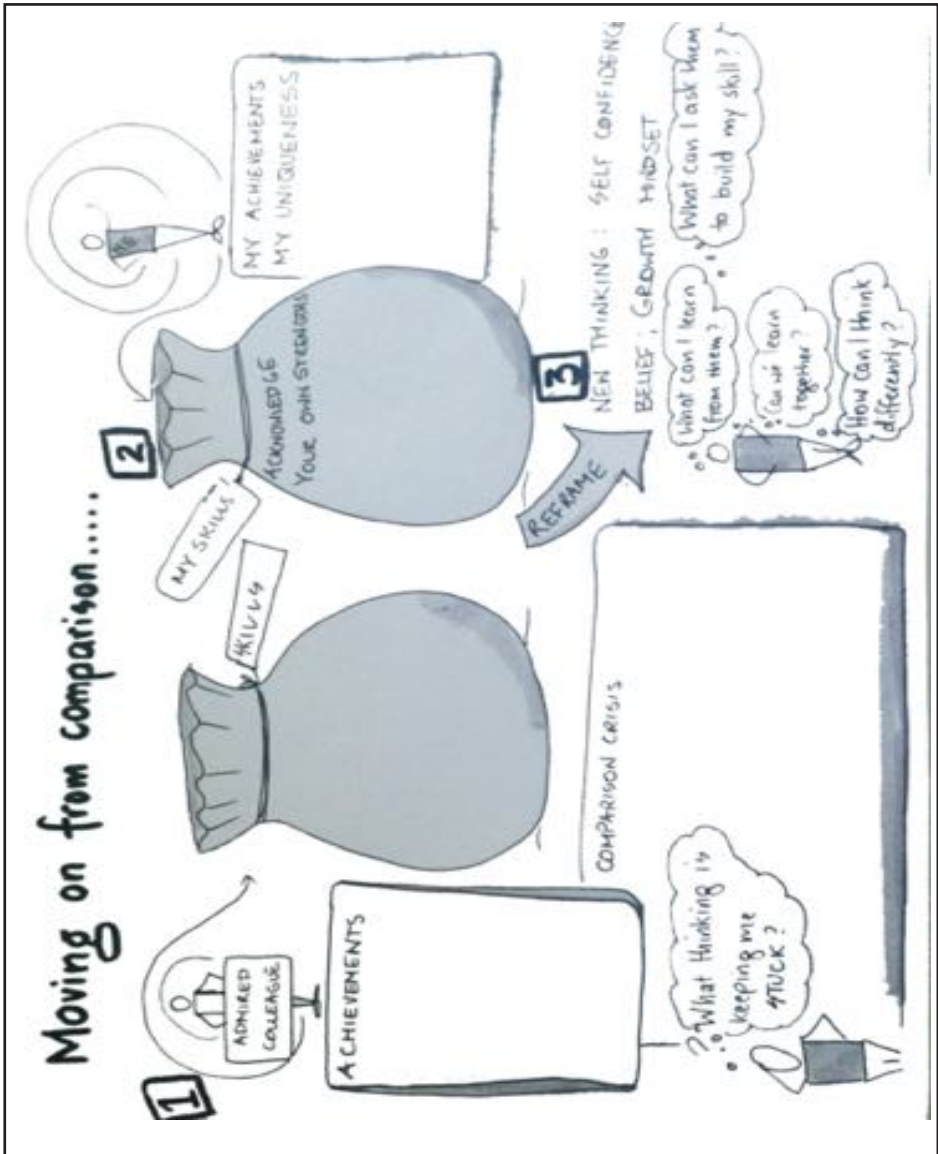 Moving on from comparison.....
1
ADMIRED
COLLEAGUE
ACHIEVEMENTS
SKILLS
COMPARISON CRISIS
What thinking is
keeping me
STUCK?
2
MY SKILLS
ACKNOWLEDGE
YOUR OWN STRENGTHS
MY ACHIEVEMENTS
MY UNIQUENESS
REFRAME
3
NEW THINKING: SELF CONFIDENCE
BELIEF; GROWTH MINDSET
What can I learn
from them?
What can I ask them
to build my skill?
Can we learn
together?
How can I think
differently?